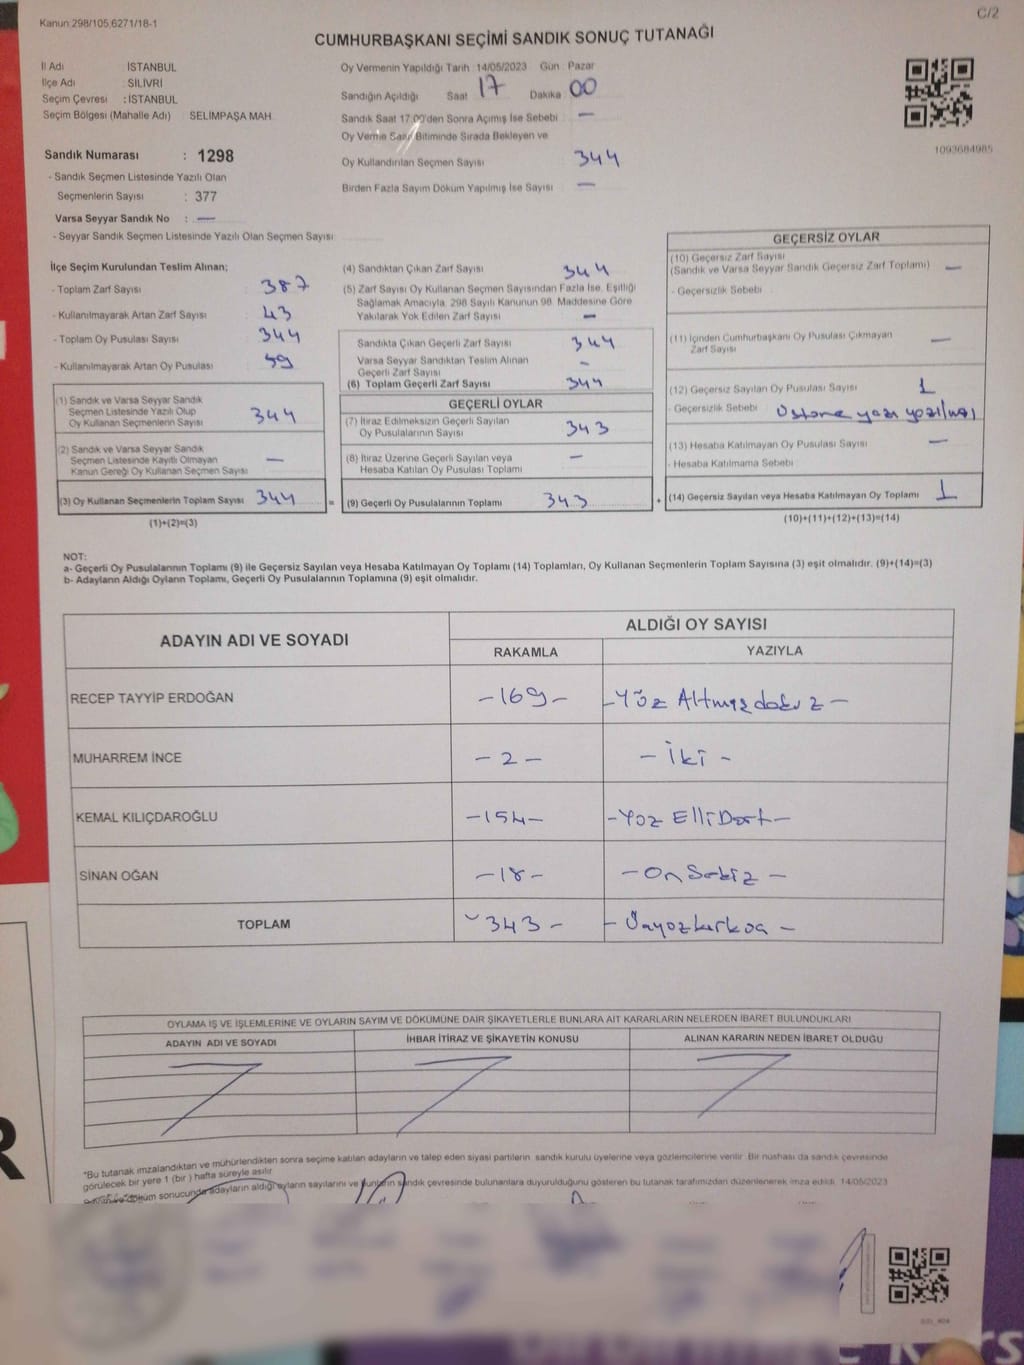 Kanun 298/105,6271/18-1
C/2
CUMHURBAŞKANI SEÇİMİ SANDIK SONUÇ TUTANAĞI
İl Adı : İSTANBUL
İlçe Adı : SİLİVRİ
Seçim Çevresi : İSTANBUL
Seçim Bölgesi (Mahalle Adı) SELİMPAŞA MAH.
Sandık Numarası : 1298
- Sandık Seçmen Listesinde Yazılı Olan
Seçmenlerin Sayısı : 377
Varsa Seyyar Sandık No : —
- Seyyar Sandık Seçmen Listesinde Yazılı Olan Seçmen Sayısı
Oy Vermenin Yapıldığı Tarih 14/05/2023 Gün : Pazar
Sandığın Açıldığı Saat 17 Dakika 00
Sandık Saat 17.00'den Sonra Açılmış İse Sebebi —
Oy Verme Saati Bitiminde Sırada Bekleyen ve
Oy Kullandırılan Seçmen Sayısı 344
Birden Fazla Sayım Döküm Yapılmış İse Sayısı —
1093684985
İlçe Seçim Kurulundan Teslim Alınan;
- Toplam Zarf Sayısı : 387
- Kullanılmayarak Artan Zarf Sayısı : 43
- Toplam Oy Pusulası Sayısı : 344
- Kullanılmayarak Artan Oy Pusulası : 59
(1) Sandık ve Varsa Seyyar Sandık
Seçmen Listesinde Yazılı Olup
Oy Kullanan Seçmenlerin Sayısı 344
(2) Sandık ve Varsa Seyyar Sandık
Seçmen Listesinde Kayıtlı Olmayan
Kanun Gereği Oy Kullanan Seçmen Sayısı —
(3) Oy Kullanan Seçmenlerin Toplam Sayısı 344
(1)+(2)=(3)
=
(4) Sandıktan Çıkan Zarf Sayısı 344
(5) Zarf Sayısı Oy Kullanan Seçmen Sayısından Fazla İse, Eşitliği
Sağlamak Amacıyla, 298 Sayılı Kanunun 98. Maddesine Göre
Yakılarak Yok Edilen Zarf Sayısı —
Sandıkta Çıkan Geçerli Zarf Sayısı 344
Varsa Seyyar Sandıktan Teslim Alınan
Geçerli Zarf Sayısı -
(6) Toplam Geçerli Zarf Sayısı 344
GEÇERLİ OYLAR
(7) İtiraz Edilmeksizin Geçerli Sayılan
Oy Pusulalarının Sayısı 343
(8) İtiraz Üzerine Geçerli Sayılan veya
Hesaba Katılan Oy Pusulası Toplamı —
(9) Geçerli Oy Pusulalarının Toplamı 343
+
GEÇERSİZ OYLAR
(10) Geçersiz Zarf Sayısı
(Sandık ve Varsa Seyyar Sandık Geçersiz Zarf Toplamı) —
- Geçersizlik Sebebi :
(11) İçinden Cumhurbaşkanı Oy Pusulası Çıkmayan
Zarf Sayısı —
(12) Geçersiz Sayılan Oy Pusulası Sayısı 1
- Geçersizlik Sebebi : Üstüne yazı yazılması
(13) Hesaba Katılmayan Oy Pusulası Sayısı —
- Hesaba Katılmama Sebebi
(14) Geçersiz Sayılan veya Hesaba Katılmayan Oy Toplamı 1
(10)+(11)+(12)+(13)=(14)
NOT:
a- Geçerli Oy Pusulalarının Toplamı (9) ile Geçersiz Sayılan veya Hesaba Katılmayan Oy Toplamı (14) Toplamları, Oy Kullanan Seçmenlerin Toplam Sayısına (3) eşit olmalıdır. (9)+(14)=(3)
b- Adayların Aldığı Oyların Toplamı, Geçerli Oy Pusulalarının Toplamına (9) eşit olmalıdır.
ADAYIN ADI VE SOYADI
ALDIĞI OY SAYISI
RAKAMLA YAZIYLA
RECEP TAYYİP ERDOĞAN -169- -Yüz Altmışdokuz-
MUHARREM İNCE -2- -İki-
KEMAL KILIÇDAROĞLU -154- -Yüz Elli Dört-
SİNAN OĞAN -18- -On Sekiz-
TOPLAM -343- -Üçyüzkırküç-
OYLAMA İŞ VE İŞLEMLERİNE VE OYLARIN SAYIM VE DÖKÜMÜNE DAİR ŞİKAYETLERLE BUNLARA AİT KARARLARIN NELERDEN İBARET BULUNDUKLARI
ADAYIN ADI VE SOYADI İHBAR İTİRAZ VE ŞİKAYETİN KONUSU ALINAN KARARIN NEDEN İBARET OLDUĞU
*Bu tutanak imzalandıktan ve mühürlendikten sonra seçime katılan adayların ve talep eden siyasi partilerin sandık kurulu üyelerine veya gözlemcilerine verilir. Bir nüshası da sandık çevresinde
görülecek bir yere 1 (bir) hafta süreyle asılır.
döküm sonucunda adayların aldığı oyların sayılarını ve bunların sandık çevresinde bulunanlara duyurulduğunu gösteren bu tutanak tarafımızdan düzenlenerek imza edildi. 14/05/2023